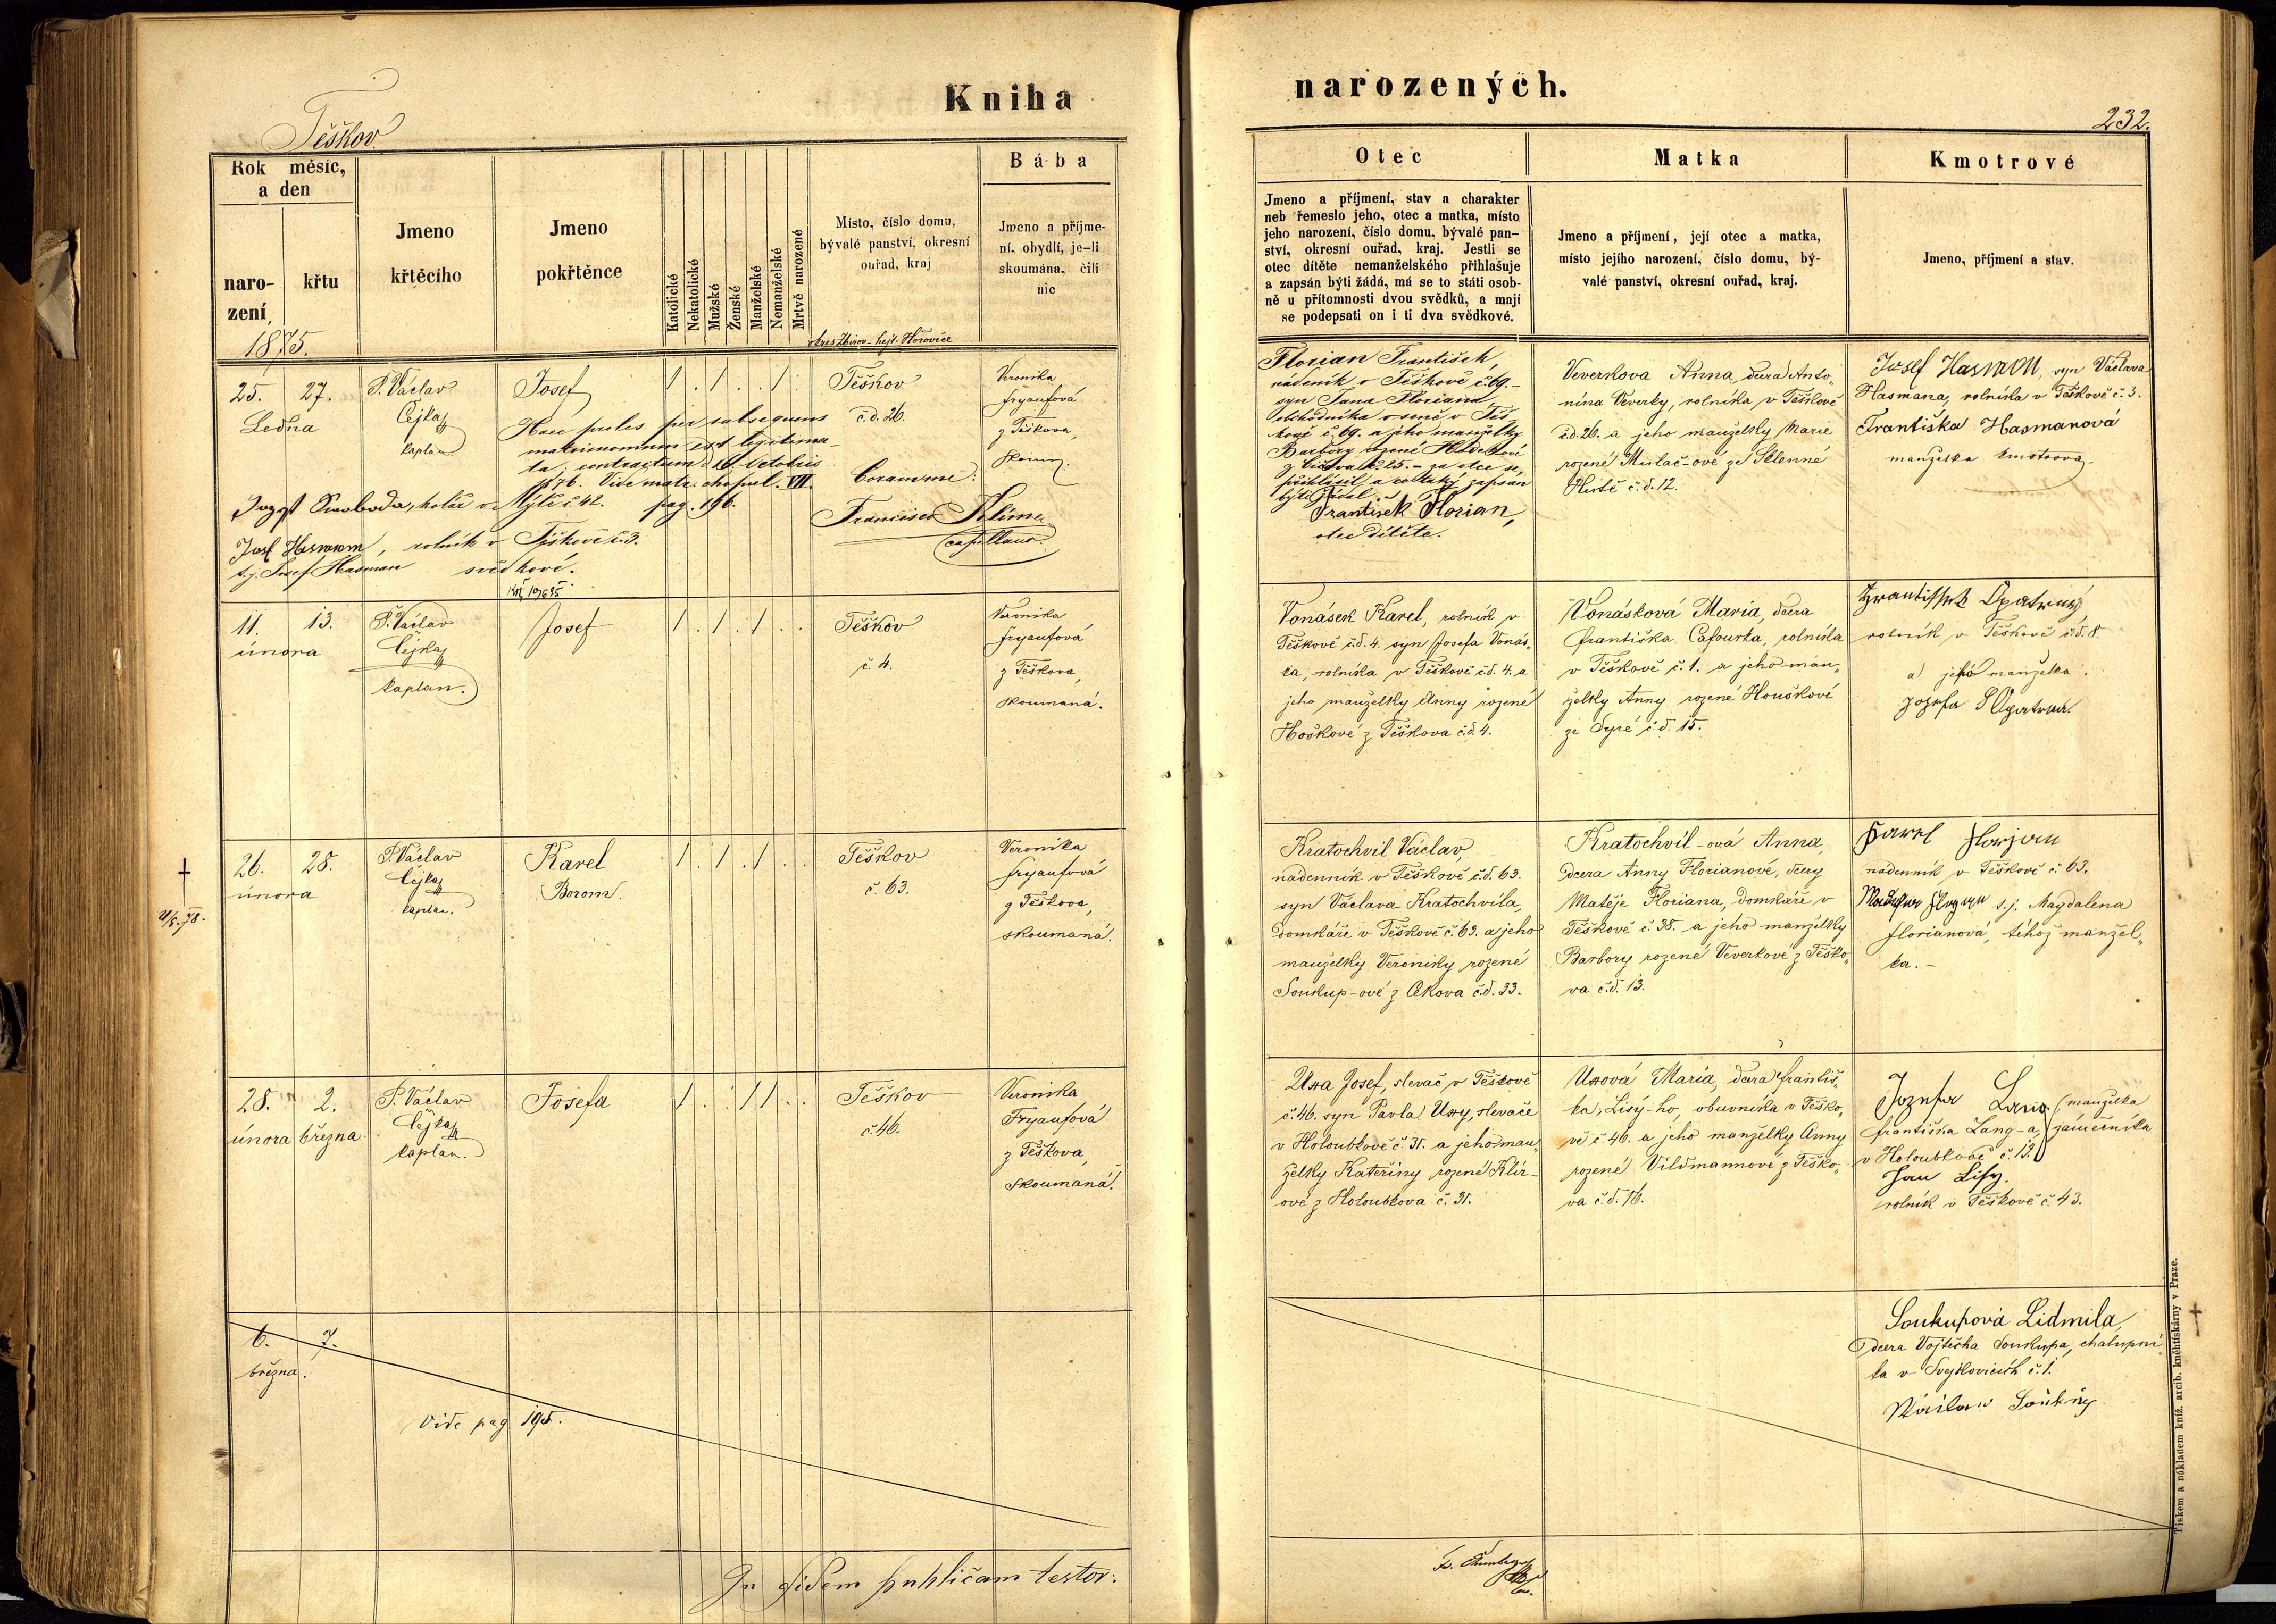 Kniha
narozených.
Těškov
232.
Rok měsíc,
a den
naro-
zení
křtu
Jmeno
křtěcího
Jmeno
pokřtěnce
Katolické
Nekatolické
Mužské
Ženské
Manželské
Nemanželské
Mrtvě narozené
Místo, číslo domu,
bývalé panství, okresní
ouřad, kraj
okres Zbirov - hejt. Hořovice
Bába
Jmeno a příjme-
ní, obydlí, je-li
skoumána, čili
nic
Otec
Jmeno a příjmení, stav a charakter
neb řemeslo jeho, otec a matka, místo
jeho narození, číslo domu, bývalé pan-
ství, okresní ouřad, kraj. Jestli se
otec dítěte nemanželského přihlašuje
a zapsán býti žádá, má se to státi osob-
ně u přítomnosti dvou svědků, a mají
se podepsati on i ti dva svědkové.
Matka
Jmeno a příjmení, její otec a matka,
místo jejího narození, číslo domu, bý-
valé panství, okresní ouřad, kraj.
Kmotrové
Jmeno, příjmení a stav.
1875.
25. 27.
Ledna
P. Václav
Čejka
kaplan
Josef
Haec proles per subsequens
matrimonium est legitima-
ta; contractum d. Octobris
1876. Vide matr. copul. VII.
pag. 196.
Svoboda, kolář v Mýtě č 42.
Josef Hasman, rolník v Těškově č. 3.
t.j. Josef Hasman svědkové.
Těškov
č.d. 26.
Coram me:
Francisco Klíma
capellano.
Veronika
Fryaufová
z Těškova,
skoum.
Florian František,
nádeník v Těškově č. 69.-
syn Jana Floriana,
obchodníka v Těš
kově č. 69. a jeho manželky
Barbory rozené
za otce se,
přihlásil, a co taký zapsán
býti žádal.
František Florian,
otec dítěte.
Veverkova Anna, dcera Anto-
nína Veverky, rolníka v Těškově
č.d. 26. a jeho manželky Marie
rozené Mulač-ové ze Sklenné
Hutě č.d. 12.
Josef Hasman, syn Václava
Hasmana, rolníka v Těškově č. 3.
Františka Hasmanová
manželka kmotrova.
11. 13.
února
P. Václav
Čejka
kaplan.
Josef
Těškov
č. 4.
Veronika
Fryaufová
z Těškova,
skoumaná.
Vonásek Karel, rolník v
Těškově č.d. 4. syn Josefa Vonás-
ka, rolníka v Těškově č.d. 4. a
jeho manželky Anny rozené
Hoškové z Těškova č.d. 4.
Vonásková Maria, dcera
Františka Cafourka, rolníka
v Těškově č. 1. a jeho man-
želky Anny rozené Houškové
ze Syré č.d. 15.
Frantissek Opatrný
rolník v Těškově č.d. 8.
a jeho manželka.
Jozefa Opatrná.
26. 28.
února
P. Václav
Čejka
kaplan.
Karel
Borom.
Těškov
č. 63.
Veronika
Fryaufová
z Těškova,
skoumaná.
Kratochvil Václav,
nádenník v Těškově č.d. 63.
syn Václava Kratochvíla,
domkáře v Těškově č. 63. a jeho
manželky Veroniky rozené
Soukup-ové z Cekova č.d. 33.
Kratochvíl-ová Anna,
dcera Anny Florianové, dcery
Matěje Floriana, domkáře v
Těškově č. 38. a jeho manželky
Barbory rozené Veverkové z Těško-
va č.d. 13.
Karel Florjan
nádenník v Těškově č. 63.
t.j. Magdalena
Florianová, téhož manžel-
ka.-
28. 2.
února března
P. Václav
Čejka
kaplan.
Josefa
Těškov
č 46.
Veronika
Fryaufová
z Těškova,
skoumaná.
Uxa Josef, slevač v Těškově
č. 46. syn Pavla Uxy, slevače
v Holoubkově č. 31. a jeho man-
želky Kateřiny rozené Klír-
ové z Holoubkova č. 31.
Uxová Maria, dcera Františ-
ka, Lisý-ho, obuvníka v Těško-
vě č 46. a jeho manželky Anny
rozené Vildmannové z Těško-
va č.d. 16.
Jozefa Lang (manželka
Františka Lang-a, zámečníka
v Holoubkově č. 13.)
Jan Lisy.
rolník v Těškově č. 43.
6. 7.
března.
Vide pag 195.
Soukupová Lidmila,
dcera Vojtěcha Soukupa, chalupní-
ka v Svejkovicích č. 1.
In fidem publicam testor:
Tiskem a nákladem kníž. arcib. kněhtiskárny v Praze.